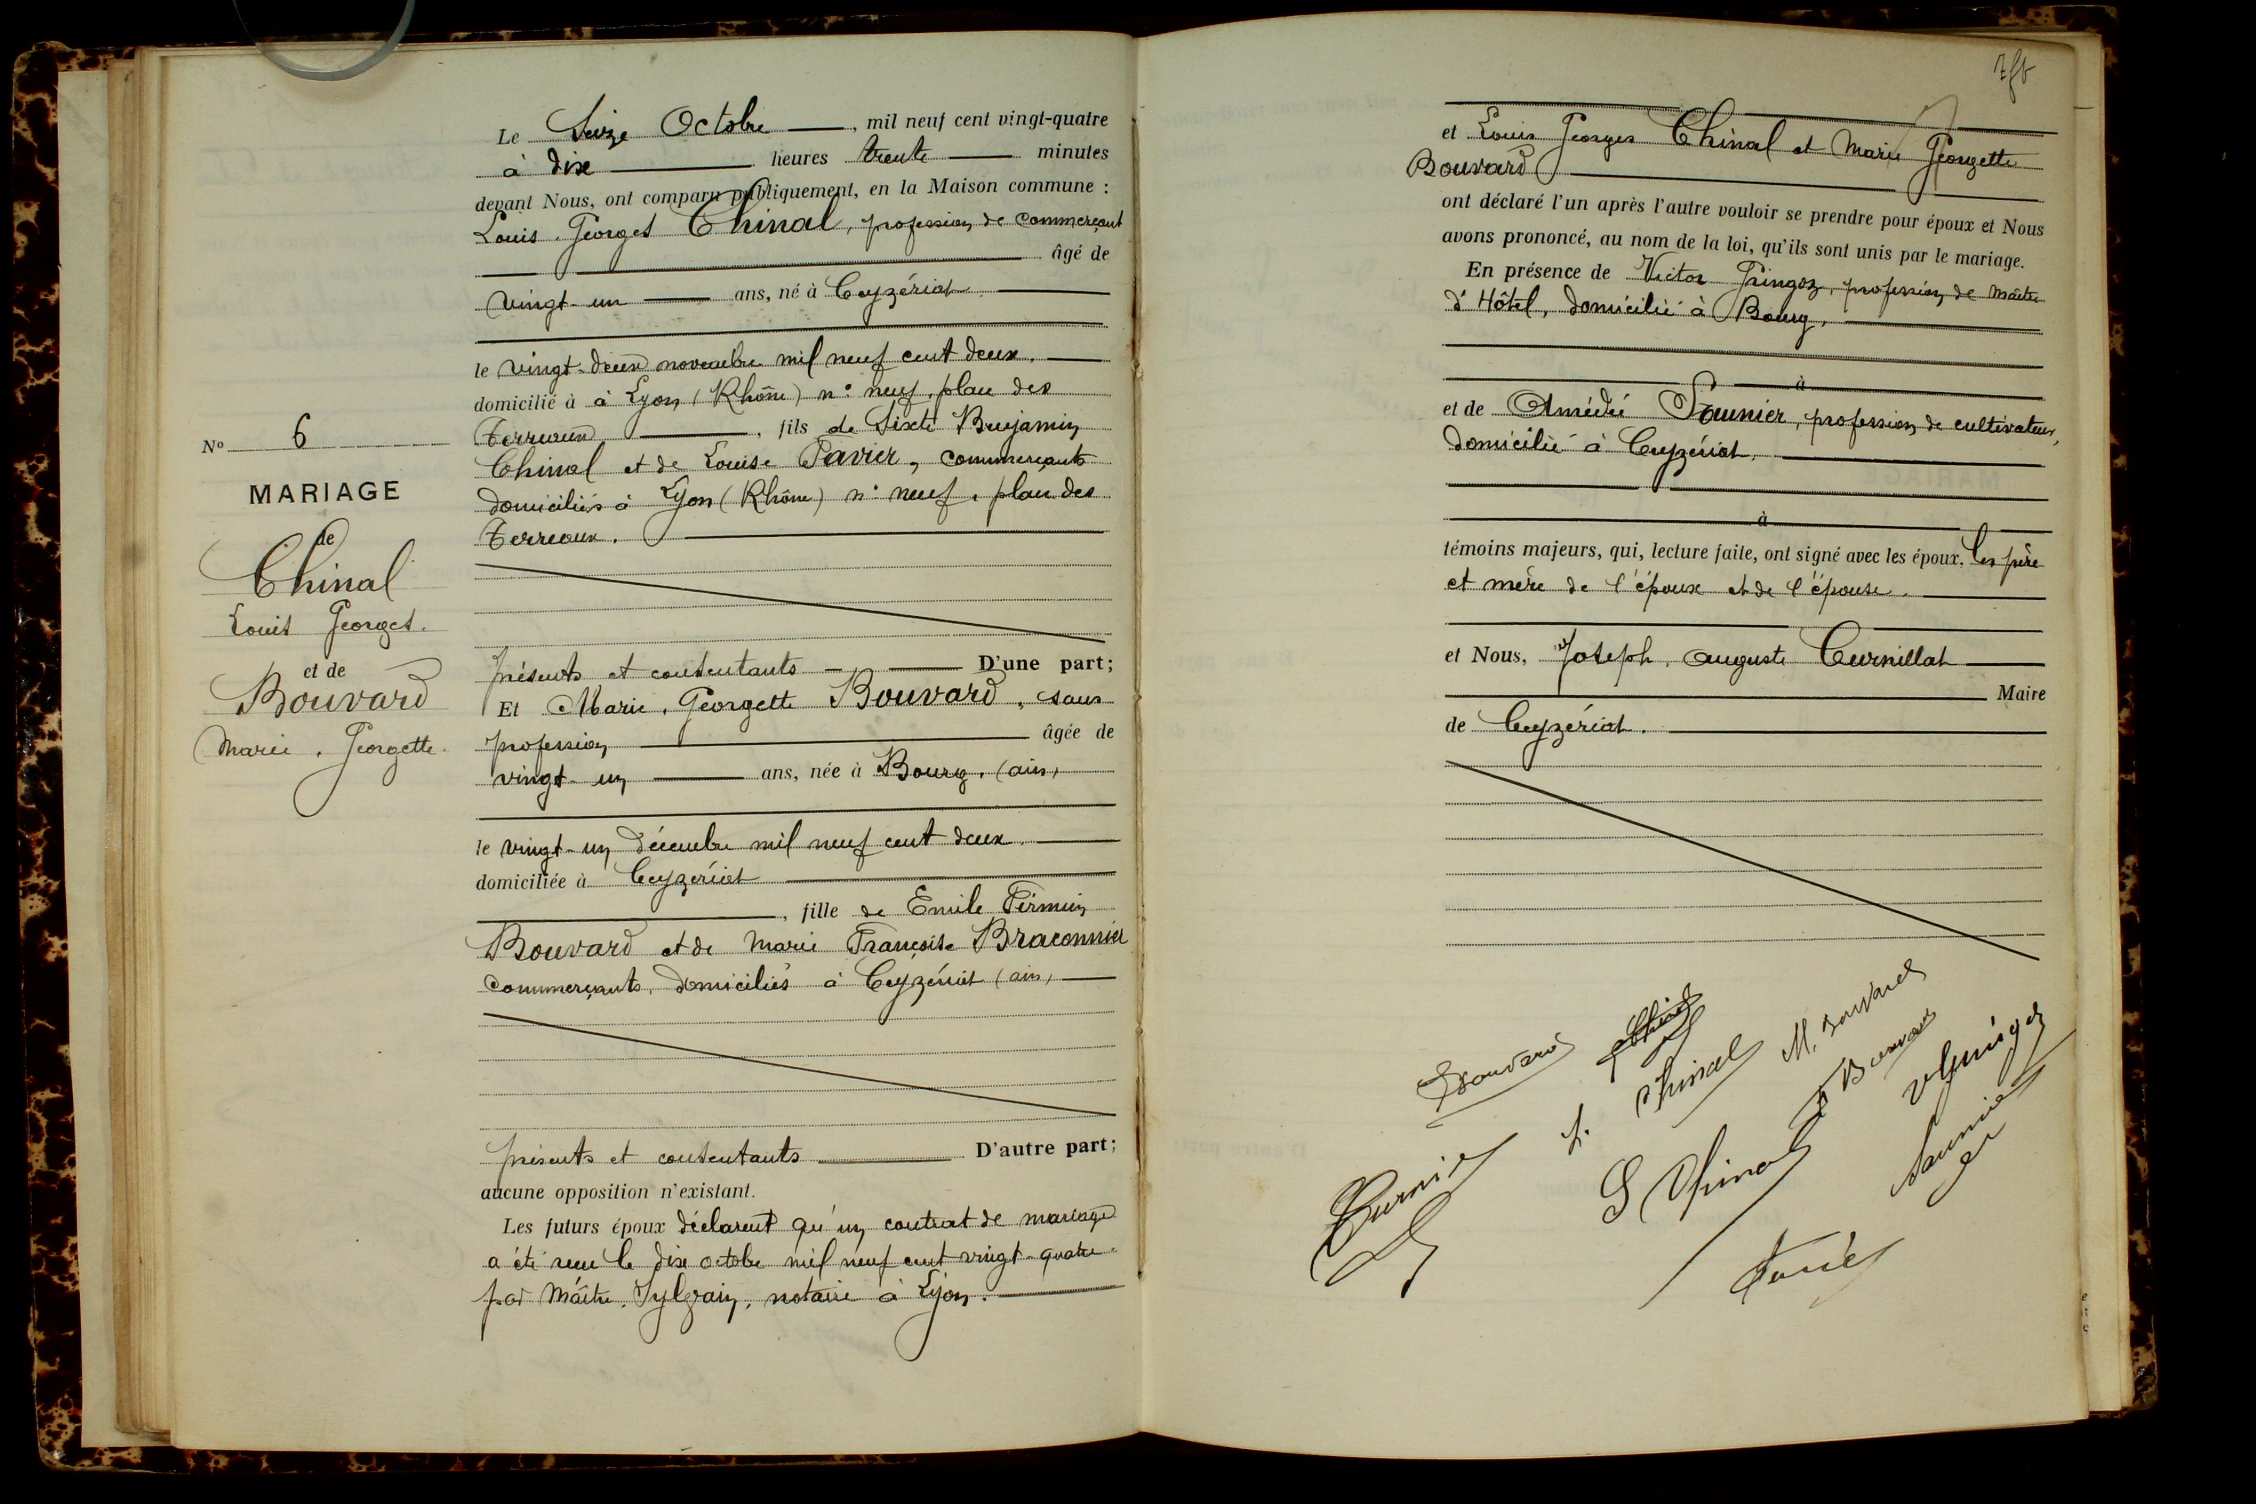 Le Seize Octobre, mil neuf cent vingt-quatre
à dix heures trente minutes
devant Nous, ont comparu publiquement, en la Maison commune :
Louis. Georges Chinal, profession de commerçant
âgé de
vingt-un ans, né à Ceyzériat
le vingt-deux novembre mil neuf cent deux.
domicilié à à Lyon (Rhône) n° neuf, place des
Terreaux, fils de Sixte Benjamin
Chinal et de Louise Pavier, commerçants
domiciliés à Lyon (Rhône) n° neuf, place des
Terreaux.
présents et consentants D'une part;
Et Marie. Georgette Bouvard, sans
profession âgée de
vingt-un ans, née à Bourg. (ain)
le vingt-un décembre mil neuf cent deux.
domiciliée à Ceyzériat
, fille de Emile Firmin
Bouvard et de Marie Françoise Braconnier
commerçants, domiciliés à Ceyzériat (ain)
présents et consentants D'autre part;
aucune opposition n'existant.
Les futurs époux déclarent qu'un contrat de mariage
a été reçu le dix octobre mil neuf cent vingt-quatre
par Maître, notaire à Lyon.
N° 6
MARIAGE
de
Chinal
Louis Georges.
et de
Bouvard
Marie. Georgette.
et Louis Georges Chinal et Marie Georgette
Bouvard
ont déclaré l'un après l'autre vouloir se prendre pour époux et Nous
avons prononcé, au nom de la loi, qu'ils sont unis par le mariage.
En présence de Victor Gringoz, profession de Maître
d'Hôtel, domicilié à Bourg.
à
et de Amédée Saunier, profession de cultivateur,
domicilié à Ceyzériat.
à
témoins majeurs, qui, lecture faite, ont signé avec les époux, les père
et mère de l'époux et de l'épouse.
et Nous, Joseph. Auguste Curnillat
Maire
de Ceyzériat.
Bouvard
L. Chinal
M. Bouvard
Bouvard
Saunier
S Chinal